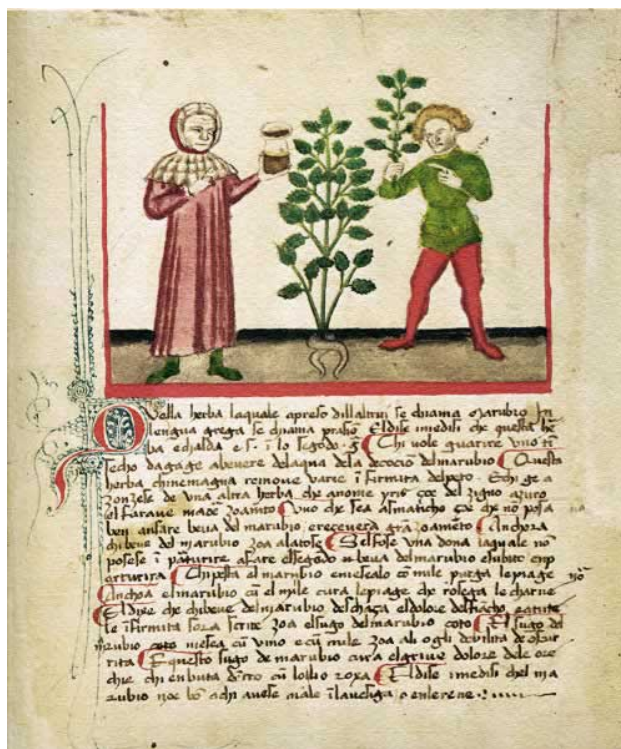 Quella herba laquale apreso dillaltrui se chiama Marubio In
lengua grega se chiama prasio Eldise imedisi che questa her
ba e chalda e.s. i lo segodo g Chi vole guarire uno ti
secho daga ge abevere delaqua dela decocion delmarubio Questa
herba chi ne magna remove varie i firmita delpeto Echi ge a
zonzese de una altra herba che a nome yris çoe del zigno azuro
el farave maor zoameto Uno che sea asmaticho çoe che no posa
ben anfare beva del marubio e recevera gra zoameto Anchora
chi beve del marubio zoa alatose Sel fose una dona laquale no
posese i parturire a fare elsegodo u beva delmarubio elubito
parturira Chi pesta el marubio e mesealo co mile purga le piage
Anchora elmarubio cu el mile cura le piage che rosega le charne
El dise che chi beve delmarubio deschaça eldolore del fiacho
le i firmita sora scrite zoa elsugo del marubio coto El sugo del
marubio coto mesea cu vino e cu mile zoa ali ogli debilita de oscu
rita E questo sugo de marubio cura elgrieve dolore dele ore
chie chi en buta dentro cu lollio roxa El dise i medisi chel ma
rubio noe bo a chi avese male i la vesiga o en le rene